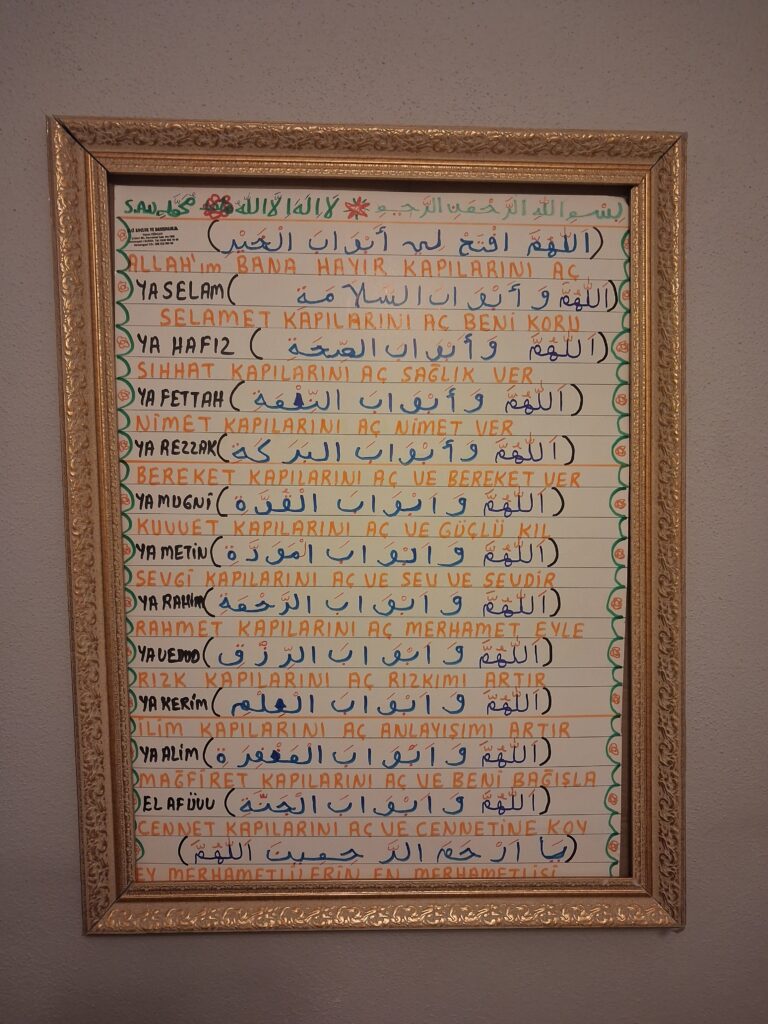 بِسْمِ اللهِ الرَّحْمَنِ الرَّحِيمِ لَا اِلَهَ اِلَّا اللهُ مُحَمَّد S.A.V
(اَللّٰهُمَّ افْتَحْ لِي أَبْوَابَ الْخَيْرِ)
ALLAH'ım BANA HAYIR KAPILARINI AÇ
YA SELAM (اَللّٰهُمَّ وَ أَبْوَابَ السَّلَامَةِ)
SELAMET KAPILARINI AÇ BENİ KORU
YA HAFIZ (اَللّٰهُمَّ وَ أَبْوَابَ الصِّحَةِ)
SIHHAT KAPILARINI AÇ SAĞLIK VER
YA FETTAH (اَللّٰهُمَّ وَ أَبْوَابَ النِّعْمَةِ)
NİMET KAPILARINI AÇ NİMET VER
YA REZZAK (اَللّٰهُمَّ وَ أَبْوَابَ البَرَكَةِ)
BEREKET KAPILARINI AÇ VE BEREKET VER
YA MUGNİ (اَللّٰهُمَّ وَ اَبْوَابَ الْقُوَّةِ)
KUVVET KAPILARINI AÇ VE GÜÇLÜ KIL
YA METİN (اَللّٰهُمَّ وَ اَبْوَابَ الْمَوَدَّةِ)
SEVGİ KAPILARINI AÇ VE SEV VE SEVDİR
YA RAHİM (اَللّٰهُمَّ وَ اَبْوَابَ الرَّحْمَةِ)
RAHMET KAPILARINI AÇ MERHAMET EYLE
YA VEDUD (اَللّٰهُمَّ وَ اَبْوَابَ الرِّزْقِ)
RIZK KAPILARINI AÇ RIZKIMI ARTIR
YA KERİM (اَللّٰهُمَّ وَ اَبْوَابَ الْعِلْمِ)
İLİM KAPILARINI AÇ ANLAYIŞIMI ARTIR
YA ALİM (اَللّٰهُمَّ وَ اَبْوَابَ الْمَغْفِرَةِ)
MAĞFİRET KAPILARINI AÇ VE BENİ BAĞIŞLA
EL AFÜVV (اَللّٰهُمَّ وَ اَبْوَابَ الْجَنَّةِ)
CENNET KAPILARINI AÇ VE CENNETİNE KOY
(يَا اَرْحَمَ الرَّحِمِينَ اَللّٰهُمَّ)
EY MERHAMETLİLERİN EN MERHAMETLİSİ